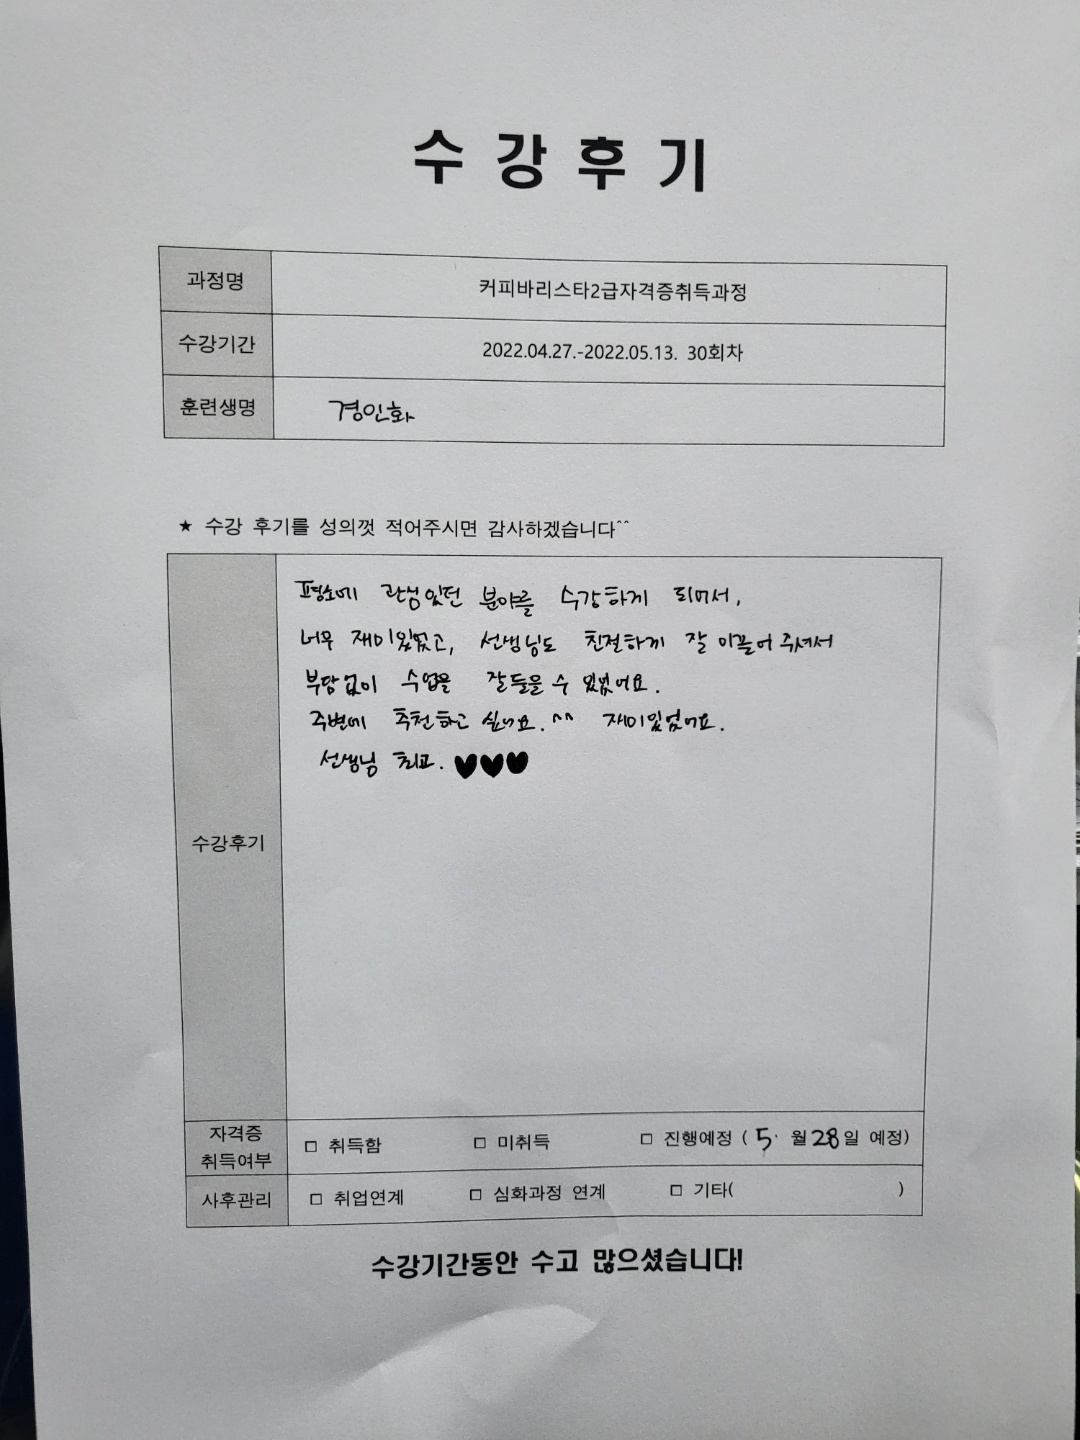 수강후기
과정명 커피바리스타2급자격증취득과정
수강기간 2022.04.27.-2022.05.13. 30회차
훈련생명 경인화
★ 수강 후기를 성의껏 적어주시면 감사하겠습니다^^
평소에 관심있던 분야를 수강하게 되어서,
너무 재미있었고, 선생님도 친절하게 잘 이끌어 주셔서
부담없이 수업을 잘 들을 수 있었어요.
주변에 추천하고 싶어요.^^ 재미있었어요.
선생님 최고. ♥♥♥
수강후기
자격증 취득여부 □ 취득함 □ 미취득 □ 진행예정 ( 5· 월 28일 예정)
사후관리 □ 취업연계 □ 심화과정 연계 □ 기타( )
수강기간동안 수고 많으셨습니다!